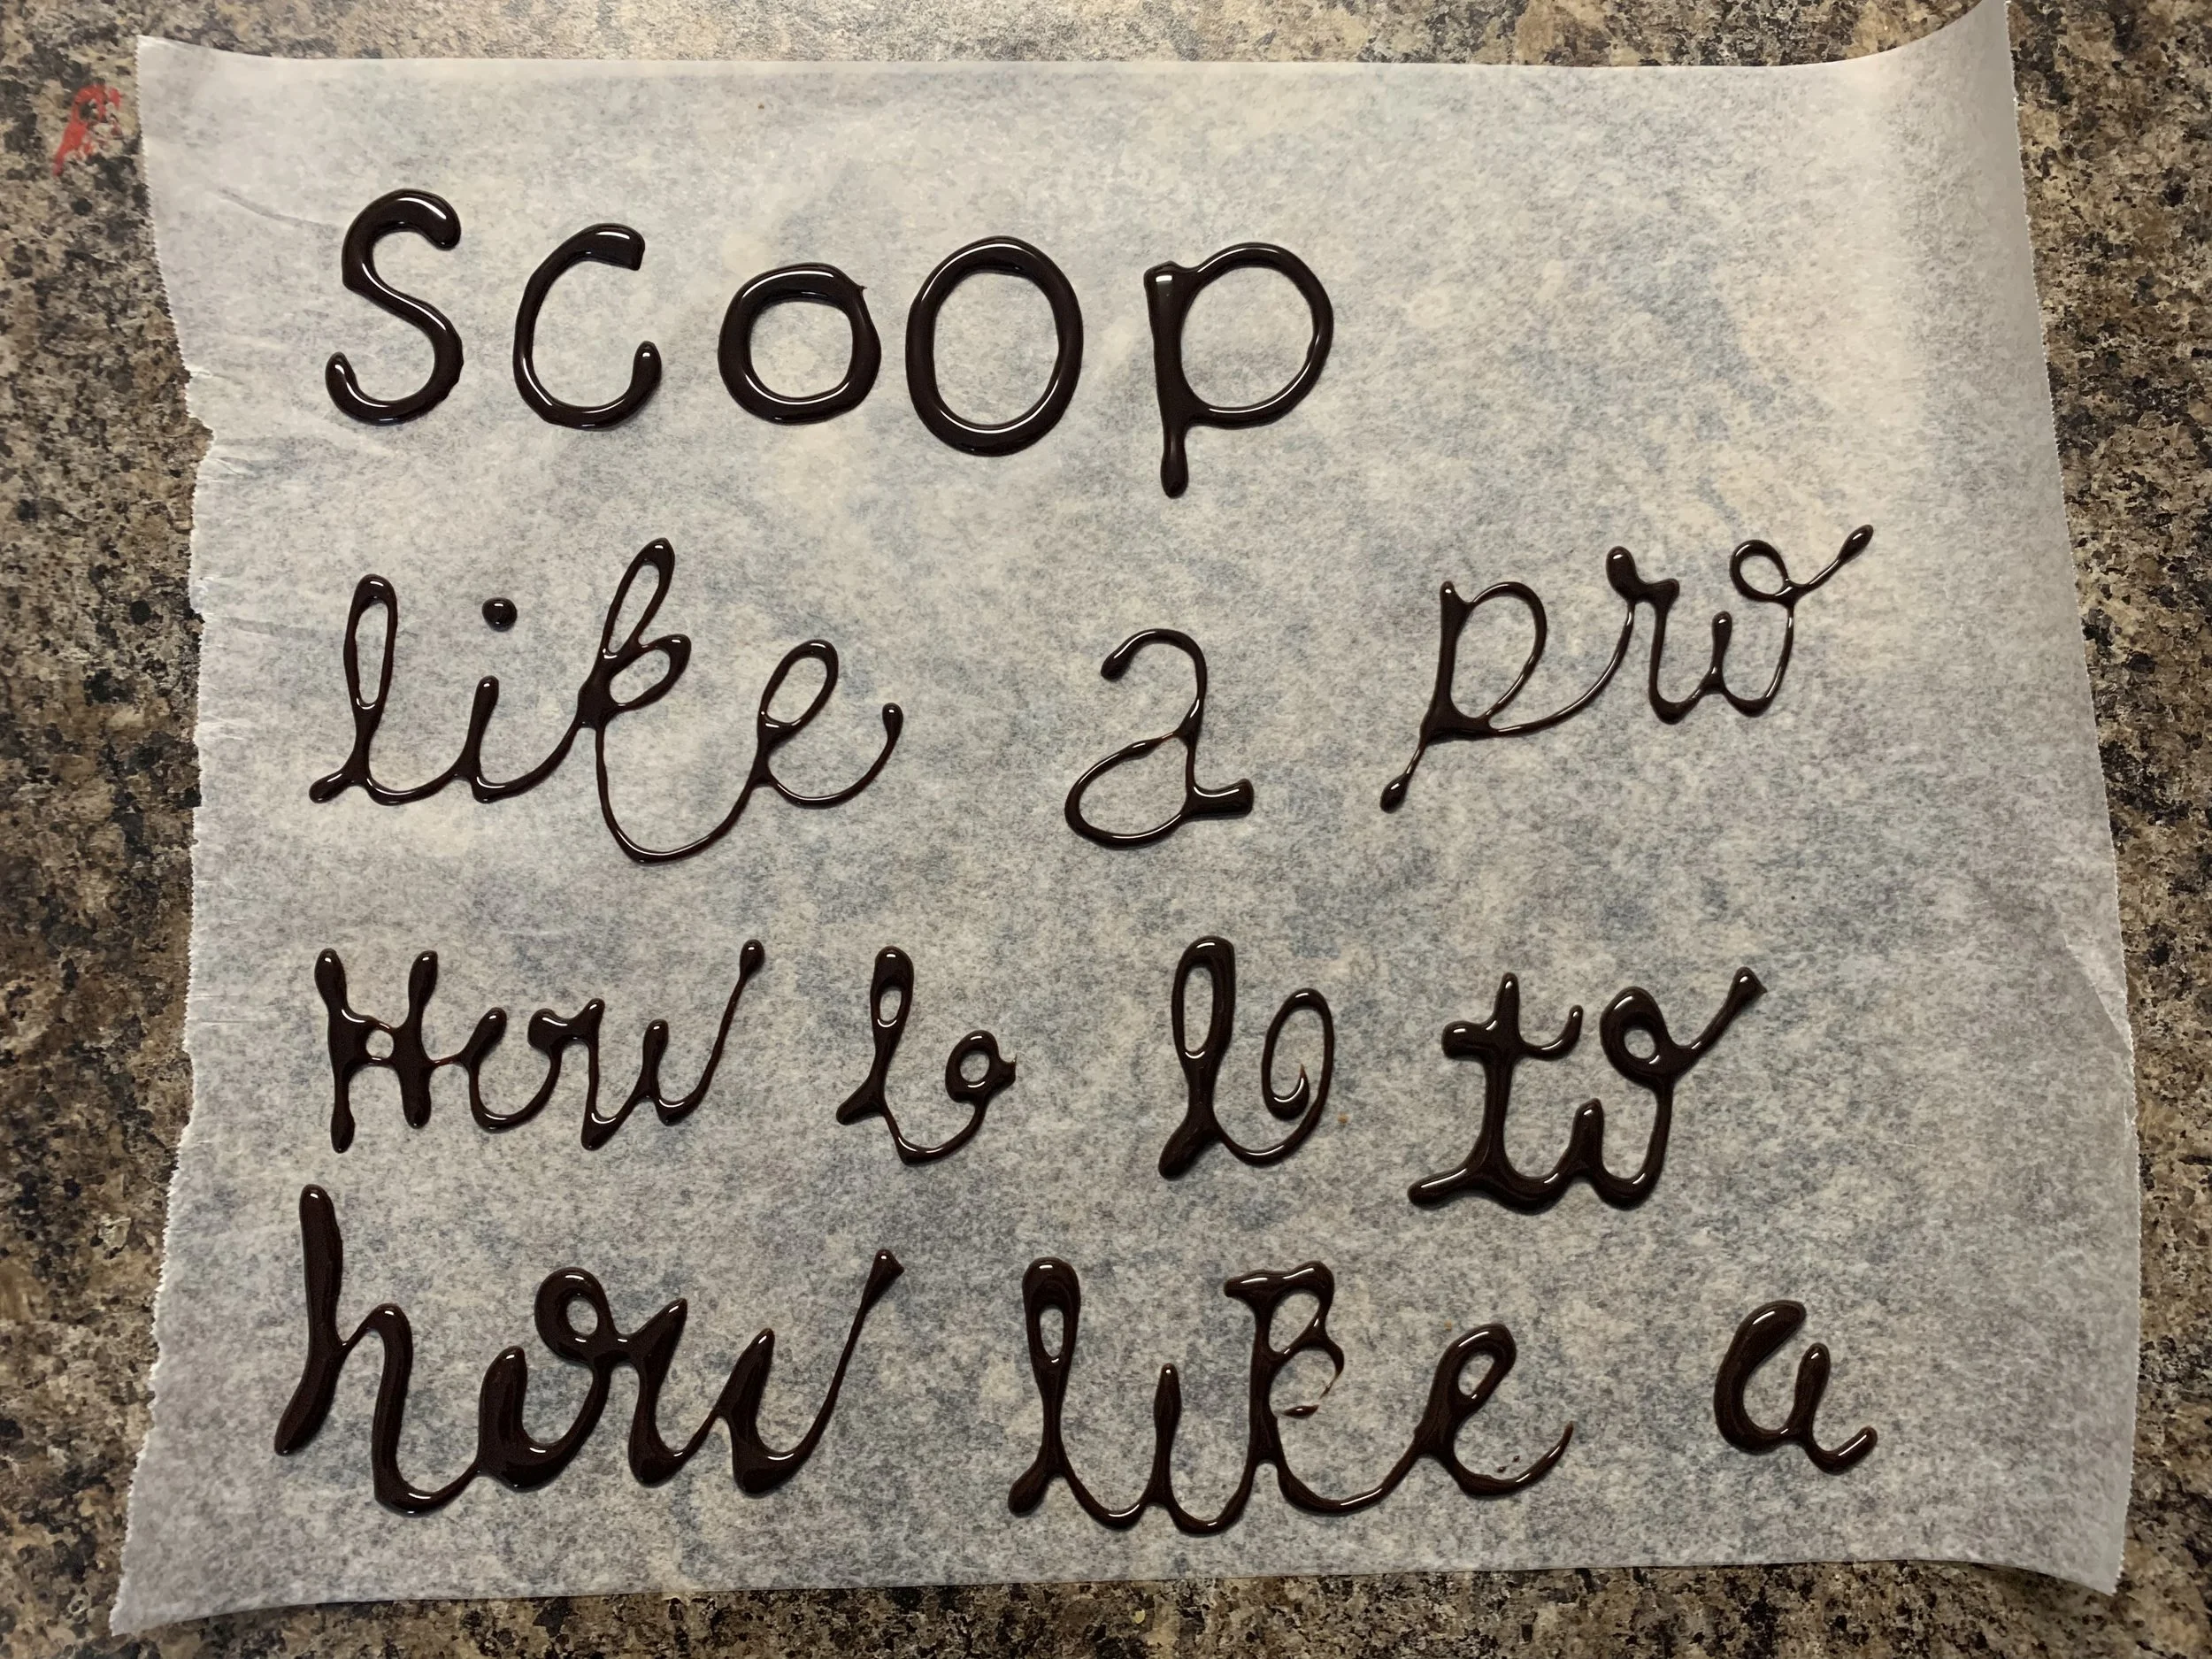 Scoop
like a pro
How lo lo to
how like a